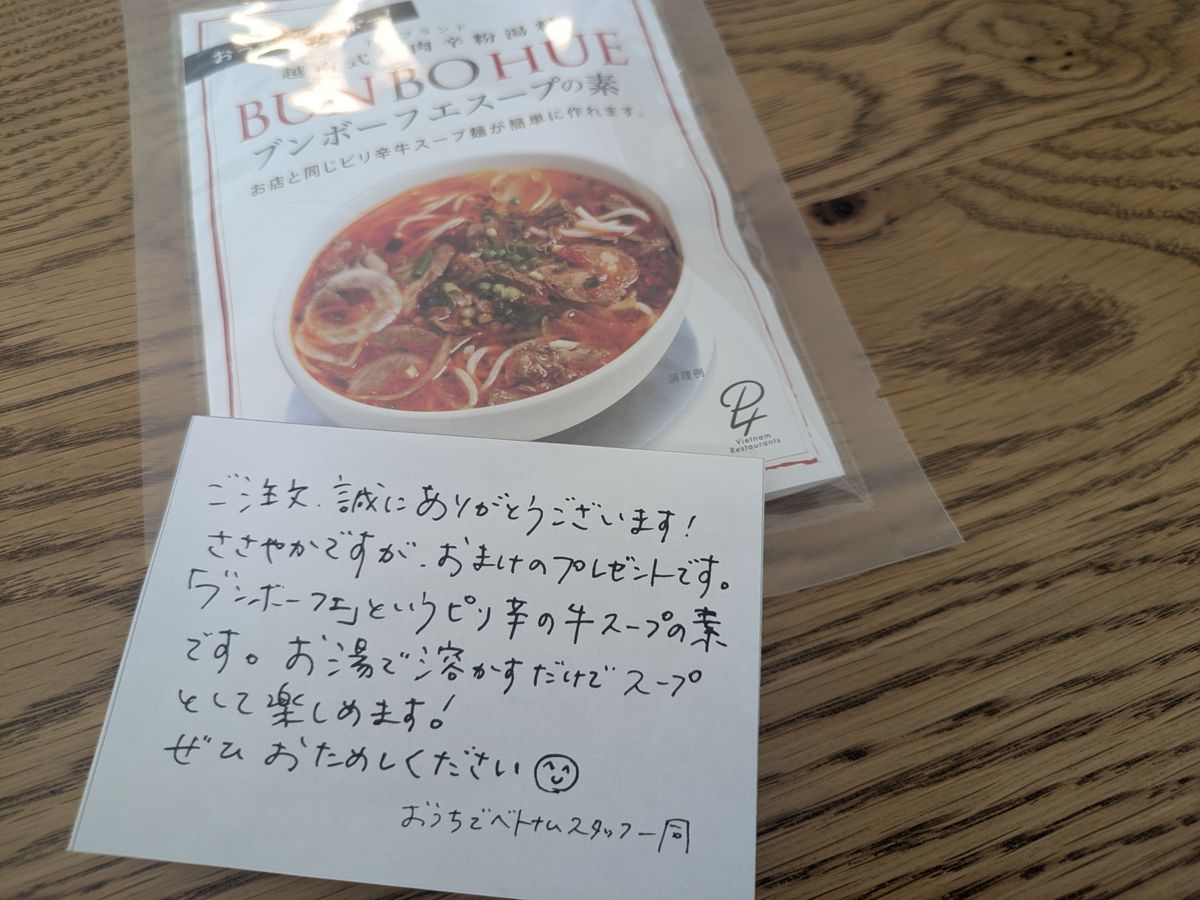 お
ランド
越南式 肉辛粉湯
BUN BO HUE
ブンボーフエスープの素
お店と同じピリ辛牛スープ麺が簡単に作れます。
調理例
P4
Vietnam
Restaurants
ご注文、誠にありがとうございます!
ささやかですが、おまけのプレゼントです。
「ブンボーフエ」というピリ辛の牛スープの素
です。お湯で溶かすだけでスープ
として楽しめます!
ぜひ おためしください
おうちでベトナムスタッフ一同